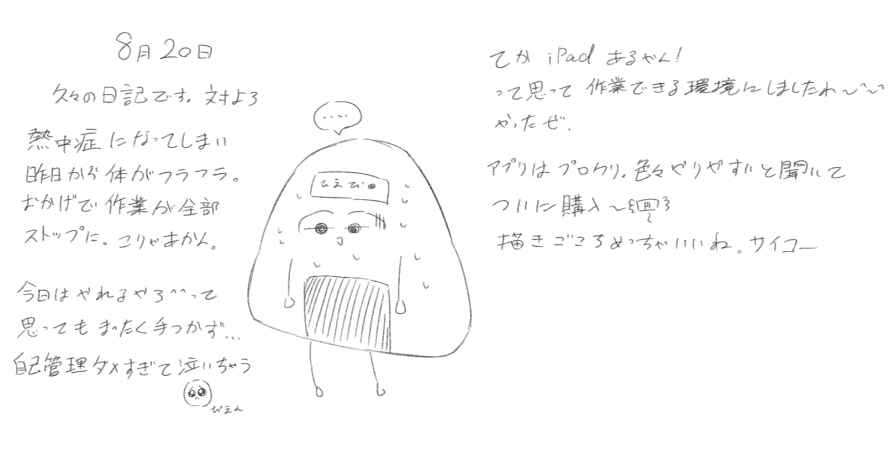 8月20日
久々の日記です。対よろ
熱中症になってしまい
昨日から体がフラフラ。
おかげで作業が全部
ストップに。こりゃあかん。
今日はやれるやろ^^って
思ってもまったく手つかず…
自己管理ダメすぎて泣いちゃう
ぴえん
....
ひえぴ
てかiPadあるやん!
って思って作業できる環境にしましたわ〜〜〜
やったぜ.
アプリはプロクリ。色々やりやすいと聞いて
ついに購入〜
描きごころめっちゃいいね。サイコー